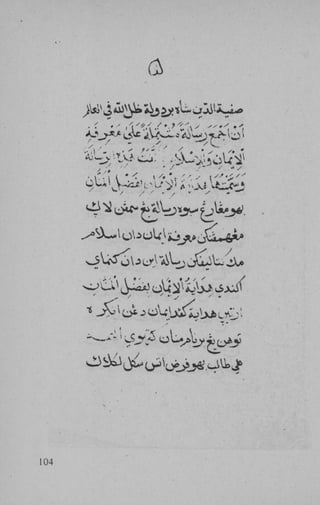 صفية الدين شاه بردولة ظل الله في العالم
أن أجمع رسالة مشتملة على معرفة
الإيمان والإسلام ألفت هذه الرسالة
وسميتها هداية الإيمان بفضل المنان
بهو مغارغ سبوه رسالة يغ سمفن لاݢ
مڠهمفنكن معرفة ايمان دان اسلام
مك كتاليفكن رسالة اين دان كنماي
اكندي هداية الإيمان بفضل المنان
ارتيڽ هداية كفد ايمان دڠن انكره
توهن يغ برنام منان
هي طالب بهو فرض اتس سكل
104